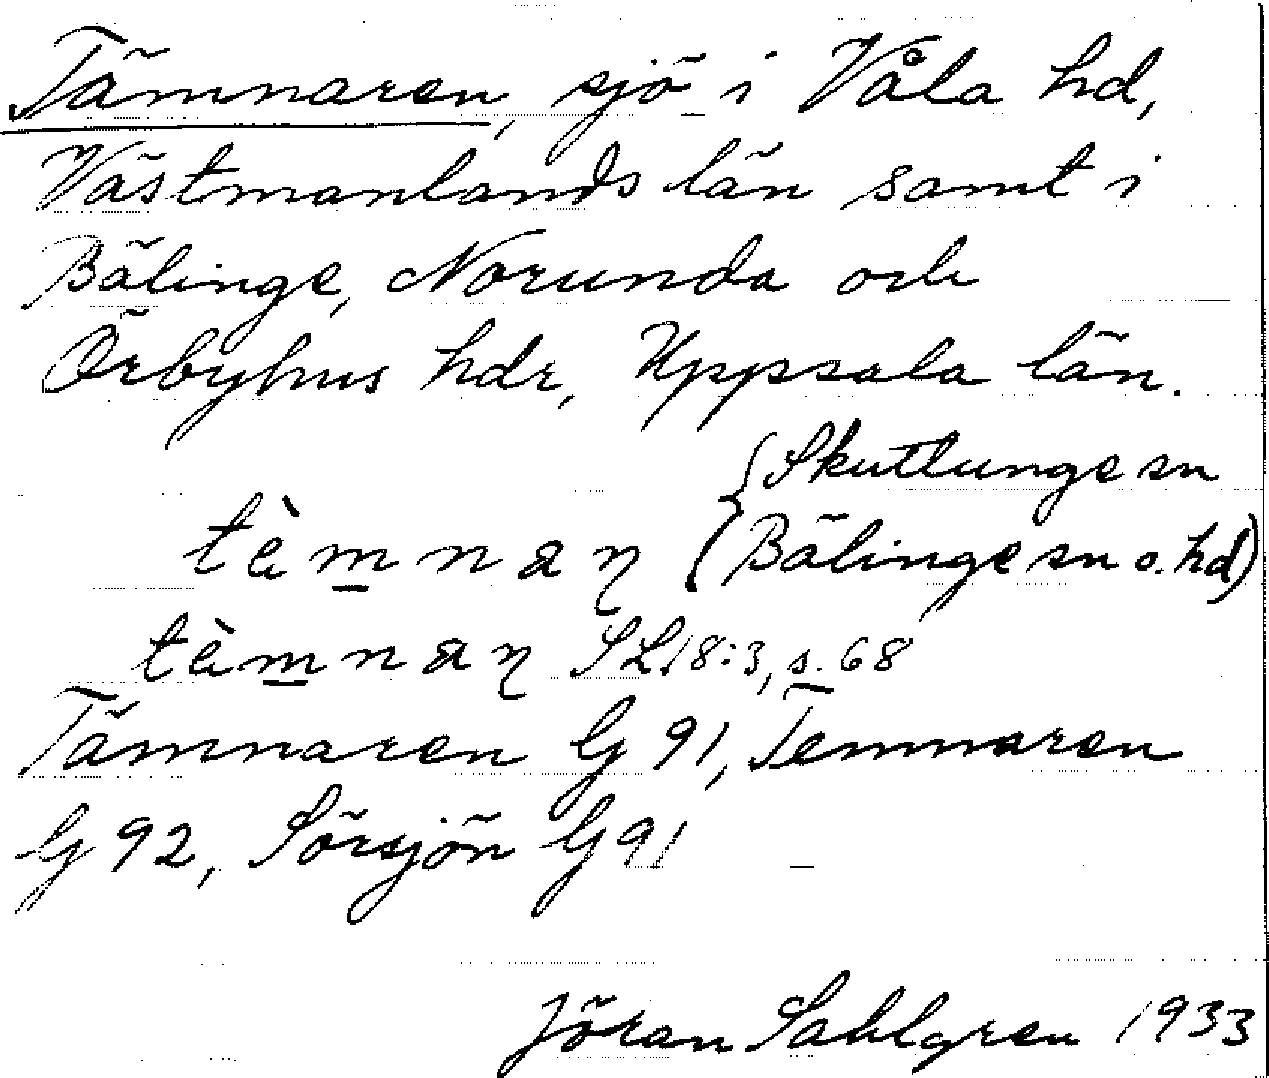 Tämnaren, sjö i Våla hd,
Västmanlands län samt i
Bälinge, Norunda och
Örbyhus hdr, Uppsala län.
{Skuttunge sn
tèmnaɳ (Bälinge sn o. hd)
tèmnaɳ SL 18:3, s. 68
Tämnaren G 91, Temnaren
G 92, Sörsjön G 91
Jöran Sahlgren 1933